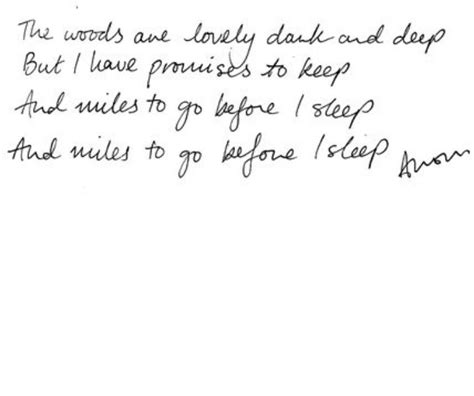 The woods are lovely dark and deep
But I have promises to keep
And miles to go before I sleep
And miles to go before I sleep Anon